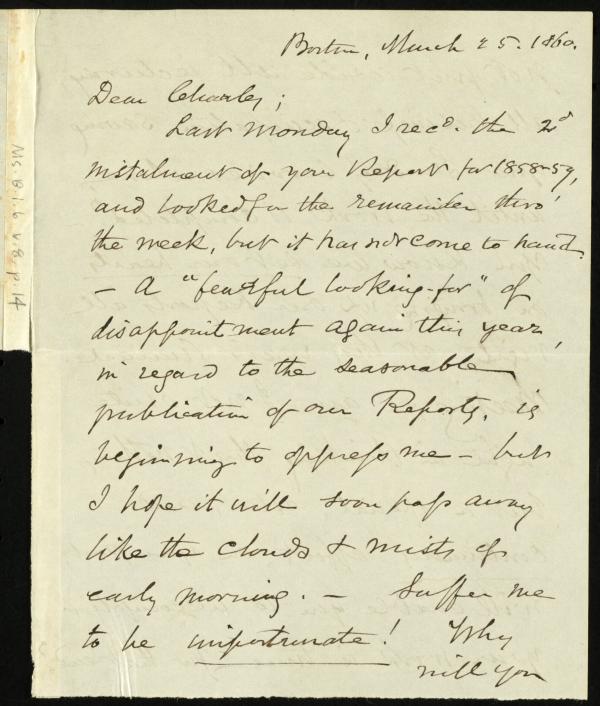 Boston, March 25. 1860.
Dear Charles;
Last Monday I recd. the 2d
instalment of your Report for 1858-59,
and looked for the remainder thro'
the week, but it has not come to hand.
— A "fearful looking-for" of
disappointment again this year,
in regard to the seasonable
publication of our Reports, is
beginning to oppress me — but
I hope it will soon pass away
like the clouds & mists of
early morning. — Suffer me
to be importunate! Why
will you
Ms. B.1.6 v.8, p.14